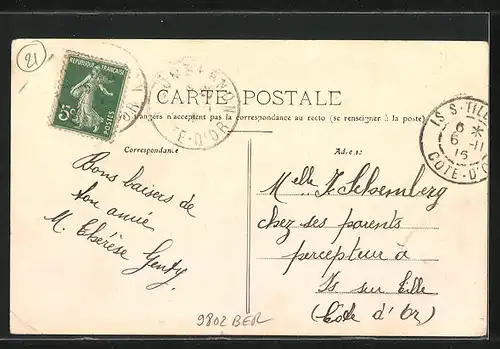 21
REPUBLIQUE FRANÇAISE
5c
POSTES
CARTE POSTALE
étrangers n'acceptent pas la correspondance au recto (se renseigner à la poste)
Correspondance
Adresse
IS S. TILLE
6 *
6 -11
15
COTE-D'O
TE-D'OR
Bons baisers de
ton amie
M. Thérèse Genty
Melle J. Schemberg
chez ses parents
percepteur à
Is sur Tille
(Côte d'Or)
9802 BER